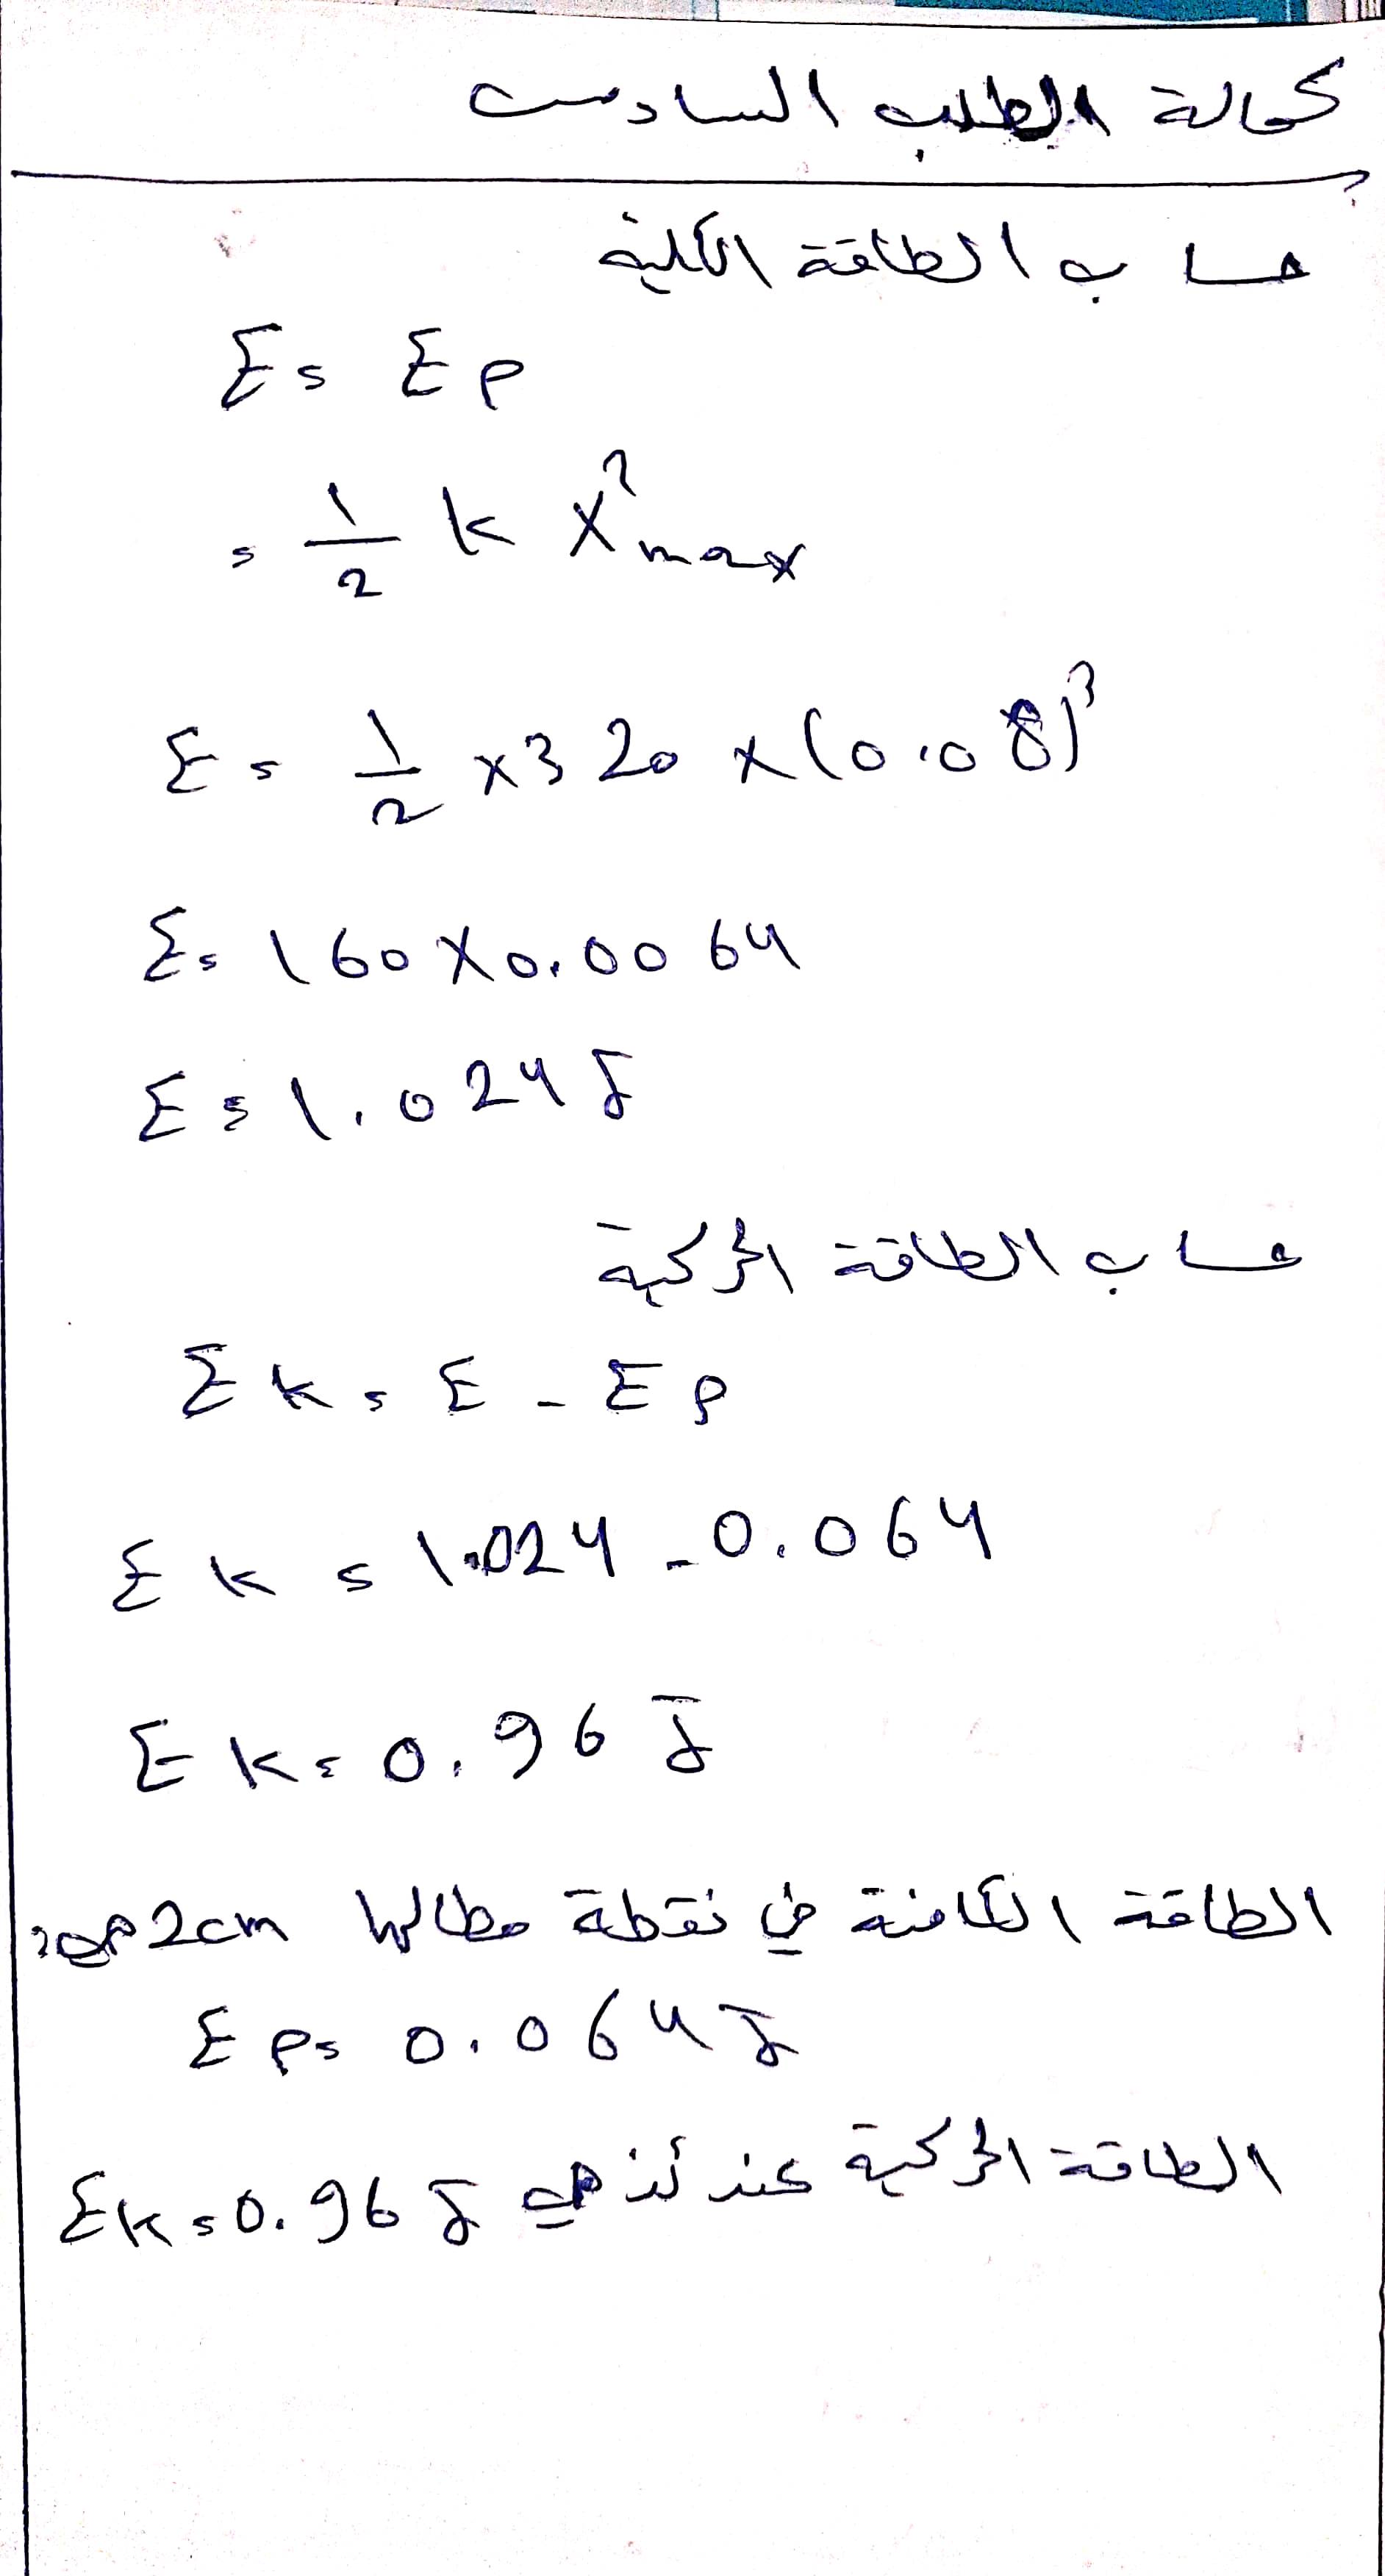 كمالة الطلب السادس
حساب الطاقة الكلية
E = Ep
= 1/2 k X²max
E = 1/2 x 320 x (0.08)²
E = 160 x 0.0064
E = 1.024 J
حساب الطاقة الحركية
Ek = E - Ep
Ek = 1.024 - 0.064
Ek = 0.96 J
الطاقة الكامنة في نقطة مطالها 2cm هي
Ep = 0.064 J
الطاقة الحركية عندئذ هي Ek = 0.96 J